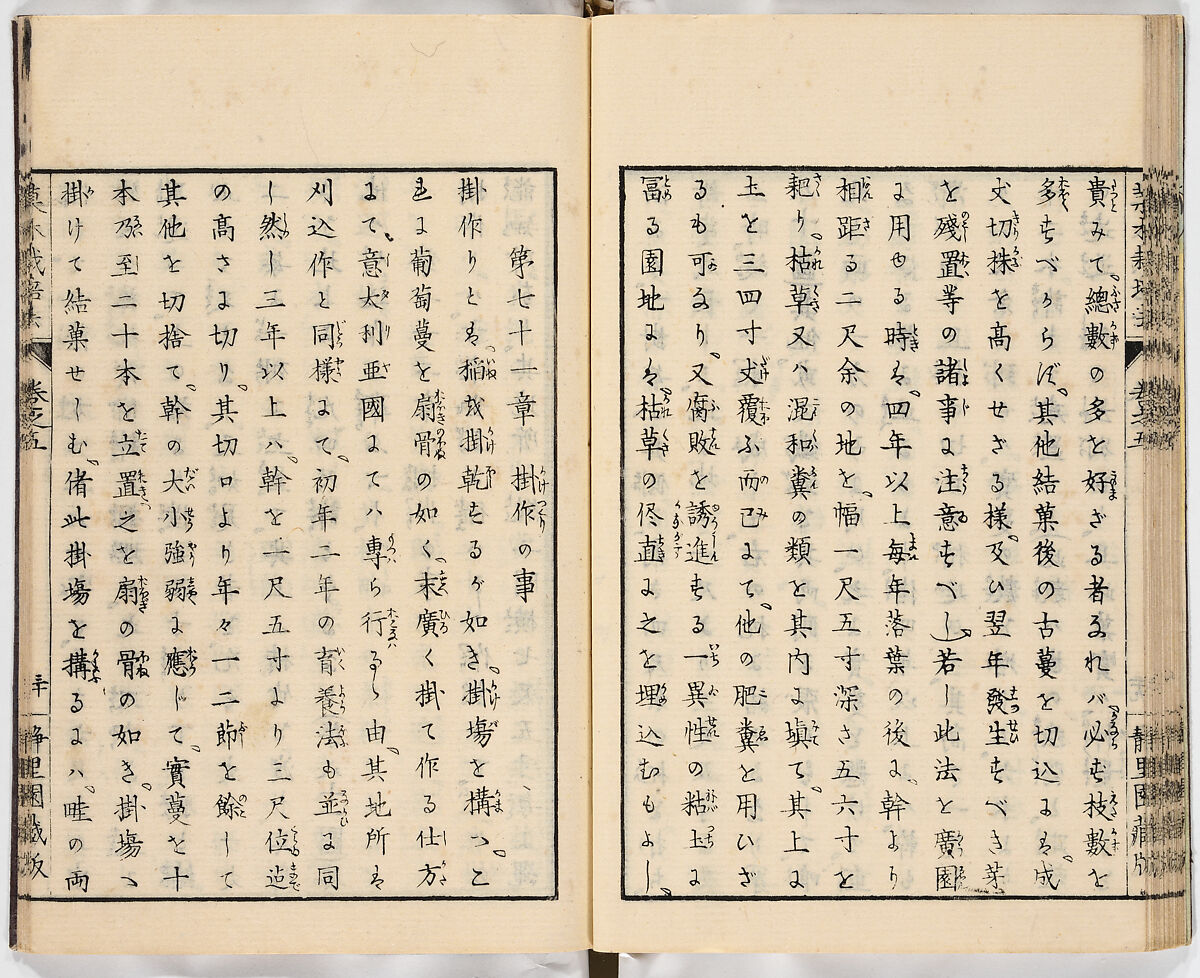 菓木栽培法
卷之五
静里園藏版
貴みて、總數の多を好ざる者なれバ、必ず枝數を
多すべからず、其他結菓後の古蔓を切込にハ、成
丈切株を高くせざる様、及ひ翌年發生すべき芽
を殘置等の諸事に注意すべし、若し此法を廣園
に用ゆる時ハ、四年以上毎年落葉の後に、幹より
相距る二尺余の地を、幅一尺五寸深さ五六寸を
耙り、枯草又ハ混和糞の類を其内に塡て、其上に
土を三四寸丈覆ふ而已にて、他の肥糞を用ひざ
るも可なり、又腐敗を誘進する一異性の粘土に
冨る園地にハ、枯草の侭直に之を埋込むもよし、
第七十一章 掛作の事
掛作りとハ、稲或掛乾するが如き、掛塲を構へ、こ
れに葡萄蔓を扇骨の如く、末廣く掛て作る仕方
にて、意太利亜國にてハ專ら行るゝ由、其地所ハ
刈込作と同様にて、初年二年の育養法も並に同
し然し三年以上ハ、幹を一尺五寸より三尺位迠
の高さに切り、其切口より年々一二節を餘して
其他を切捨て、幹の大小強弱に應じて、實蔓を十
本乃至二十本を立置之を扇の骨の如き、掛塲へ
掛けて結菓せしむ、偖此掛塲を構るにハ、畦の両
菓木栽培法
卷之五
三十
静里園藏版